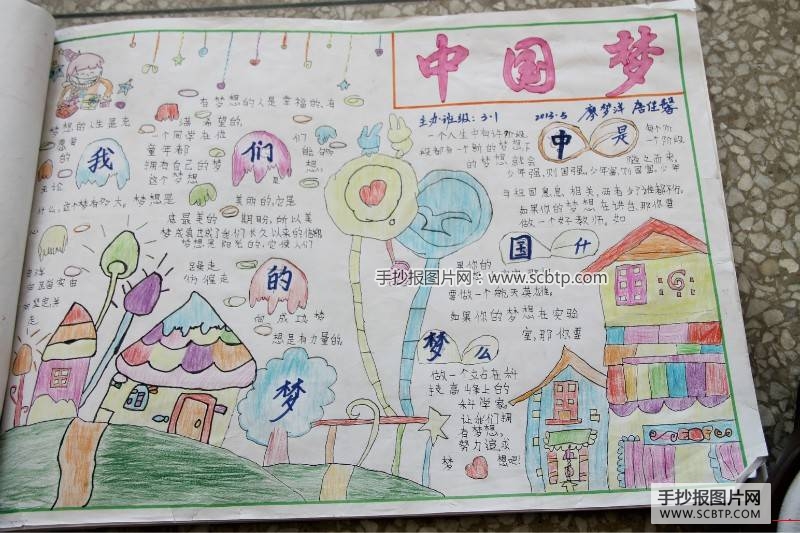 中国梦
主办班级：3.1 2013.5 廖梦洋 唐佳馨
有梦想的人是幸福的,有
梦想的人生是充满希望的,
一个同学在低
童年都
拥有自己的梦想,
这个梦想是
什么,这个梦有多大,梦想是美丽的,它是
最美的期盼,所以美
梦成真也成了我们长久以来的信
梦想是阳光的,它使人们
躁走
彷徨走
成功梦
想是有力量的
我们的梦
一个人生中有许多阶段,每个阶
段都有一个新的梦想,下一个阶段
的梦想就会随之而来,
少年强,则国强,少年富,则国富,少年
与祖国息息相关,两者少了谁都不行,
如果你的梦想在讲台,那你要
做一个好教师。如
果你的
要做一个航天英雄。
如果你的梦想在实验
室,那你要
做一个立占在科
技高峰上的
科学家
让我们拥
有梦想,
努力追求
梦想吧!
中国梦是什么
手抄报图片网：www.scbtp.com
手抄报图片网
WWW.SCBTP.COM